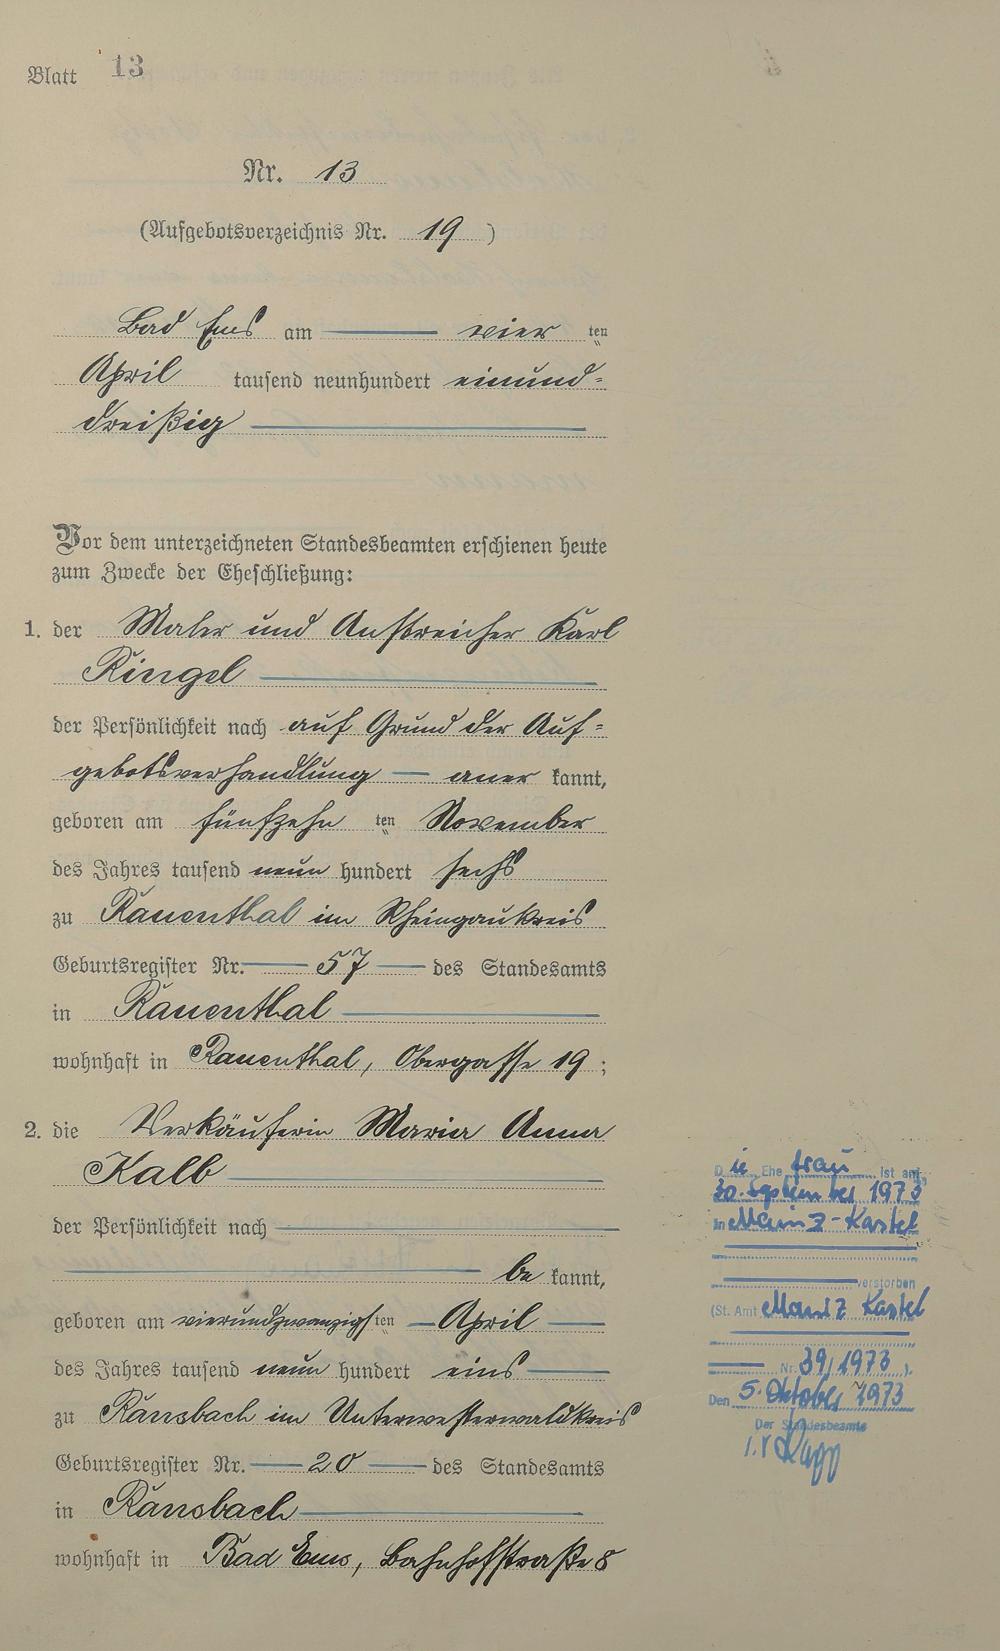 Blatt 13
Nr. 13
(Aufgebotsverzeichnis Nr. 19 )
Bad Ems am vier ten
April tausend neunhundert einund-
dreißig
Vor dem unterzeichneten Standesbeamten erschienen heute
zum Zwecke der Eheschließung:
1. der Maler und Anstreicher Karl
Ringel
der Persönlichkeit nach auf Grund der Auf-
gebotsverhandlung — aner kannt,
geboren am fünfzehn ten November
des Jahres tausend neun hundert sechs
zu Rauenthal im Rheingaukreis
Geburtsregister Nr. 57 des Standesamts
in Rauenthal
wohnhaft in Rauenthal, Obergasse 19 ;
2. die Verkäuferin Maria Anna
Kalb
der Persönlichkeit nach
be kannt,
geboren am vierundzwanzigsten April
des Jahres tausend neun hundert eins
zu Ransbach im Unterwesterwaldkreis
Geburtsregister Nr. 20 des Standesamts
in Ransbach
wohnhaft in Bad Ems, Bahnhofstraße 8
Die Ehe frau ist am
30. September 1973
in Mainz-Kastel
verstorben
(St. Amt Mainz Kastel
Nr. 39/1973 ).
Den 5. Oktober 1973
Der Standesbeamte
i.V.